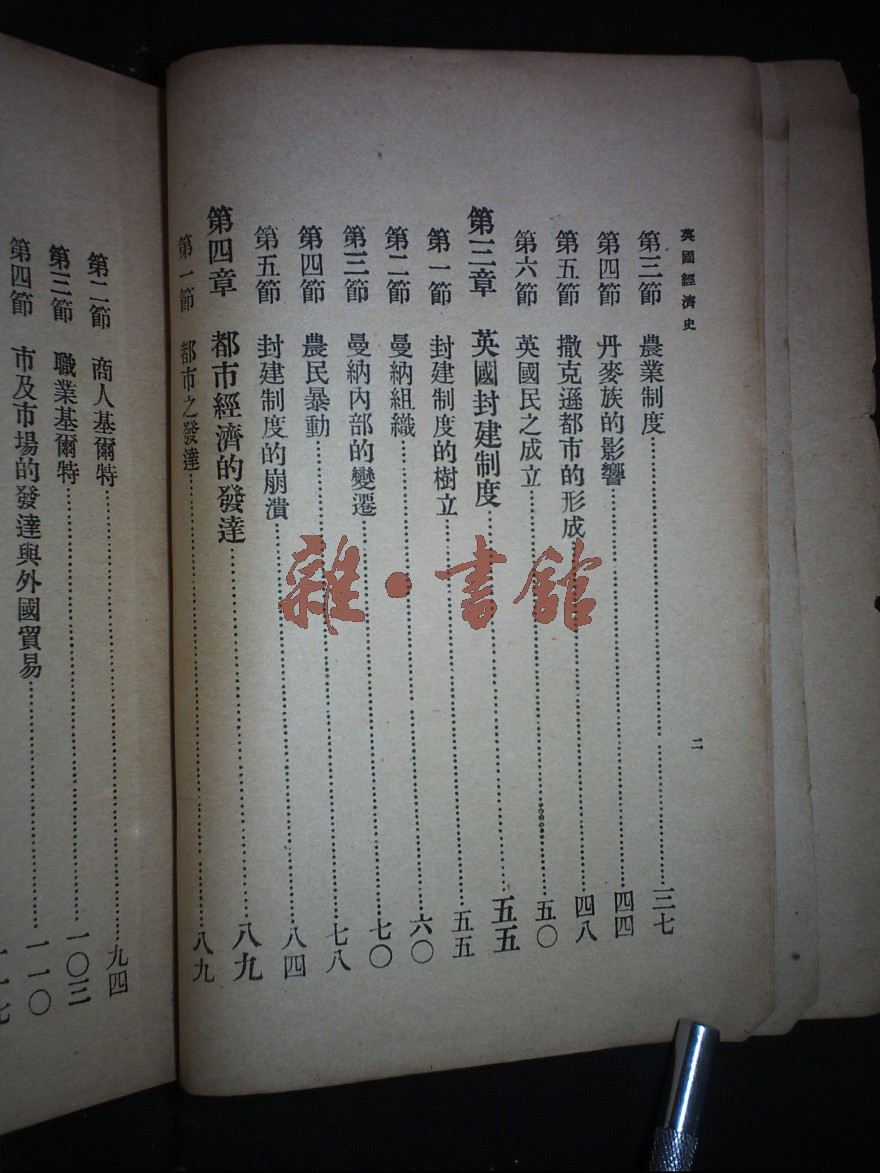 英國經濟史
二
第三節 農業制度……三七
第四節 丹麥族的影響……四四
第五節 撒克遜都市的形成……四八
第六節 英國民之成立……五〇
第三章 英國封建制度……五五
第一節 封建制度的樹立……五五
第二節 曼納組織……六〇
第三節 曼納內部的變遷……七〇
第四節 農民暴動……七八
第五節 封建制度的崩潰……八四
第四章 都市經濟的發達……八九
第一節 都市之發達……八九
第二節 商人基爾特……九四
第三節 職業基爾特……一〇三
第四節 市及市場的發達與外國貿易……一一〇
雜·書館